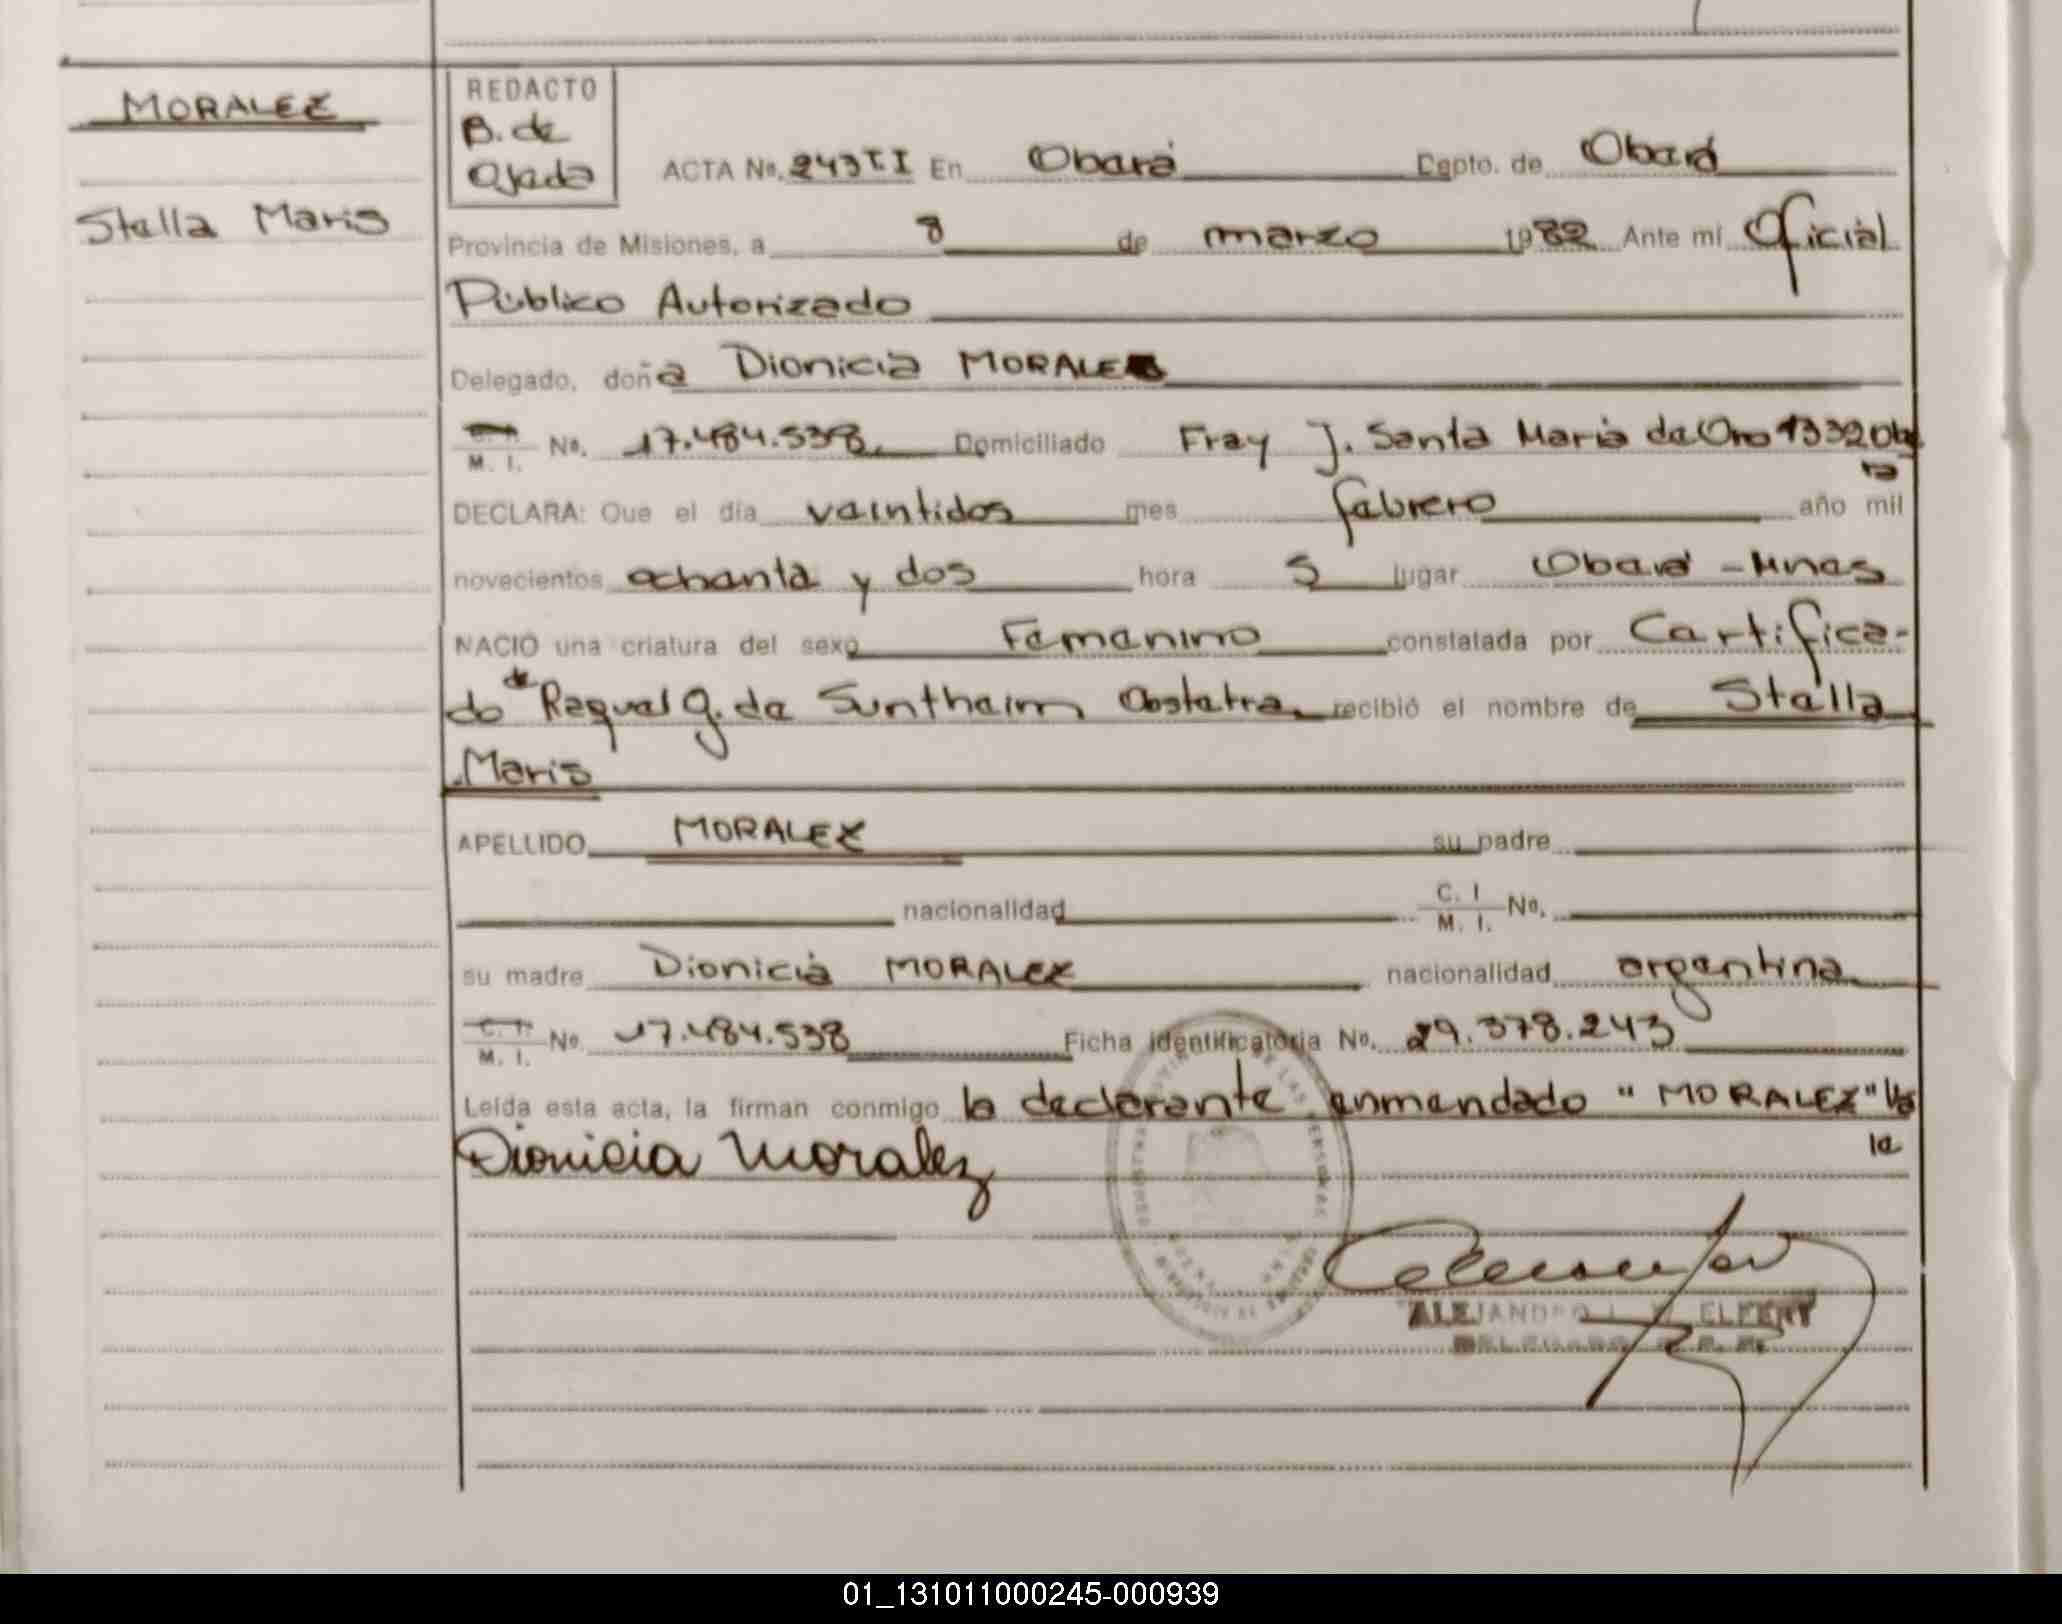 MORALEZ
Stella Maris
REDACTO
B. de
Ojeda
ACTA No. 243 T I En Oberá Depto. de Oberá
Provincia de Misiones, a 8 de marzo 1982 Ante mí Oficial
Público Autorizado
Delegado, doña Dionicia MORALEZ
C. I. M. I. No. 17.484.538 Domiciliado Fray J. Santa Maria de Oro 1332 Obe
rá
DECLARA: Que el día veintidos mes febrero año mil
novecientos ochenta y dos hora 5 lugar Oberá - Mnes
NACIÓ una criatura del sexo Femenino constatada por Certifica-
do de Raquel G. de Suntheim Obstetra recibió el nombre de Stella
Maris
APELLIDO MORALEZ su padre
nacionalidad C. I M. I. No.
su madre Dionicia MORALEZ nacionalidad argentina
C. I. M. I. No 17.484.538 Ficha identificatoria No. 29.378.243
Leída esta acta, la firman conmigo la declarante enmendado "MORALEZ" Va
le
Dionicia Moralez
ALEJANDRO
01_131011000245-000939